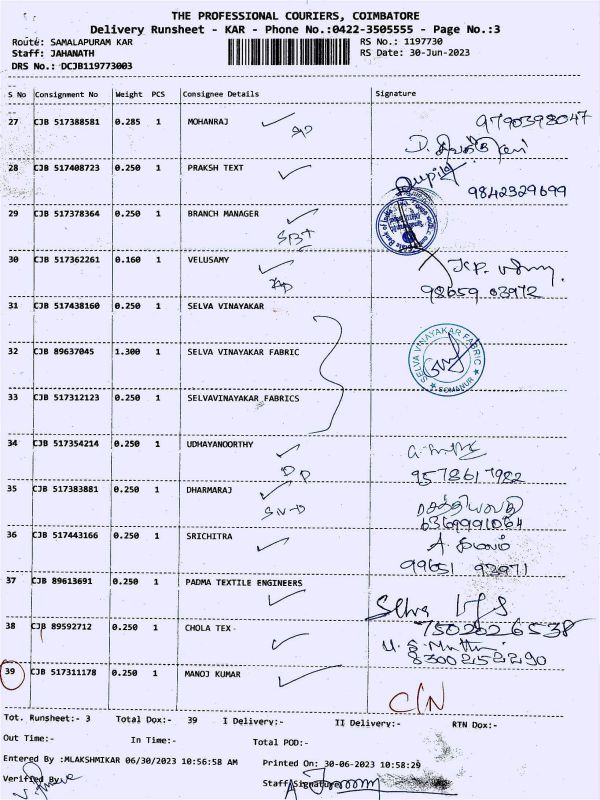 THE PROFESSIONAL COURIERS, COIMBATORE
Delivery Runsheet - KAR - Phone No.:0422-3505555 - Page No.:3
Route: SAMALAPURAM KAR
RS No.: 1197730
Staff: JAHANATH
RS Date: 30-Jun-2023
DRS No.: DCJB119773003
S No Consignment No Weight PCS Consignee Details Signature
27 CJB 517388581 0.285 1 MOHANRAJ 9790398047
28 CJB 517408723 0.250 1 PRAKSH TEXT 9842329699
29 CJB 517378364 0.250 1 BRANCH MANAGER
30 CJB 517362261 0.160 1 VELUSAMY
98659 03972
31 CJB 517438160 0.250 1 SELVA VINAYAKAR
32 CJB 89637045 1.300 1 SELVA VINAYAKAR FABRIC
SELVA VINAYAKAR FABRIC
SOMANUR
33 CJB 517312123 0.250 1 SELVAVINAYAKAR FABRICS
34 CJB 517354214 0.250 1 UDHAYANOORTHY
9578617922
35 CJB 517383881 0.250 1 DHARMARAJ
6369991064
36 CJB 517443166 0.250 1 SRICHITRA
99651 93971
37 CJB 89613691 0.250 1 PADMA TEXTILE ENGINEERS
Selva
7502626538
38 CJB 89592712 0.250 1 CHOLA TEX
8300252290
39 CJB 517311178 0.250 1 MANOJ KUMAR
C/N
Tot. Runsheet:- 3 Total Dox:- 39 I Delivery:- II Delivery:- RTN Dox:-
Out Time:- In Time:- Total POD:-
Entered By :MLAKSHMIKAR 06/30/2023 10:56:58 AM Printed On: 30-06-2023 10:58:29
Verified By Staff Signature